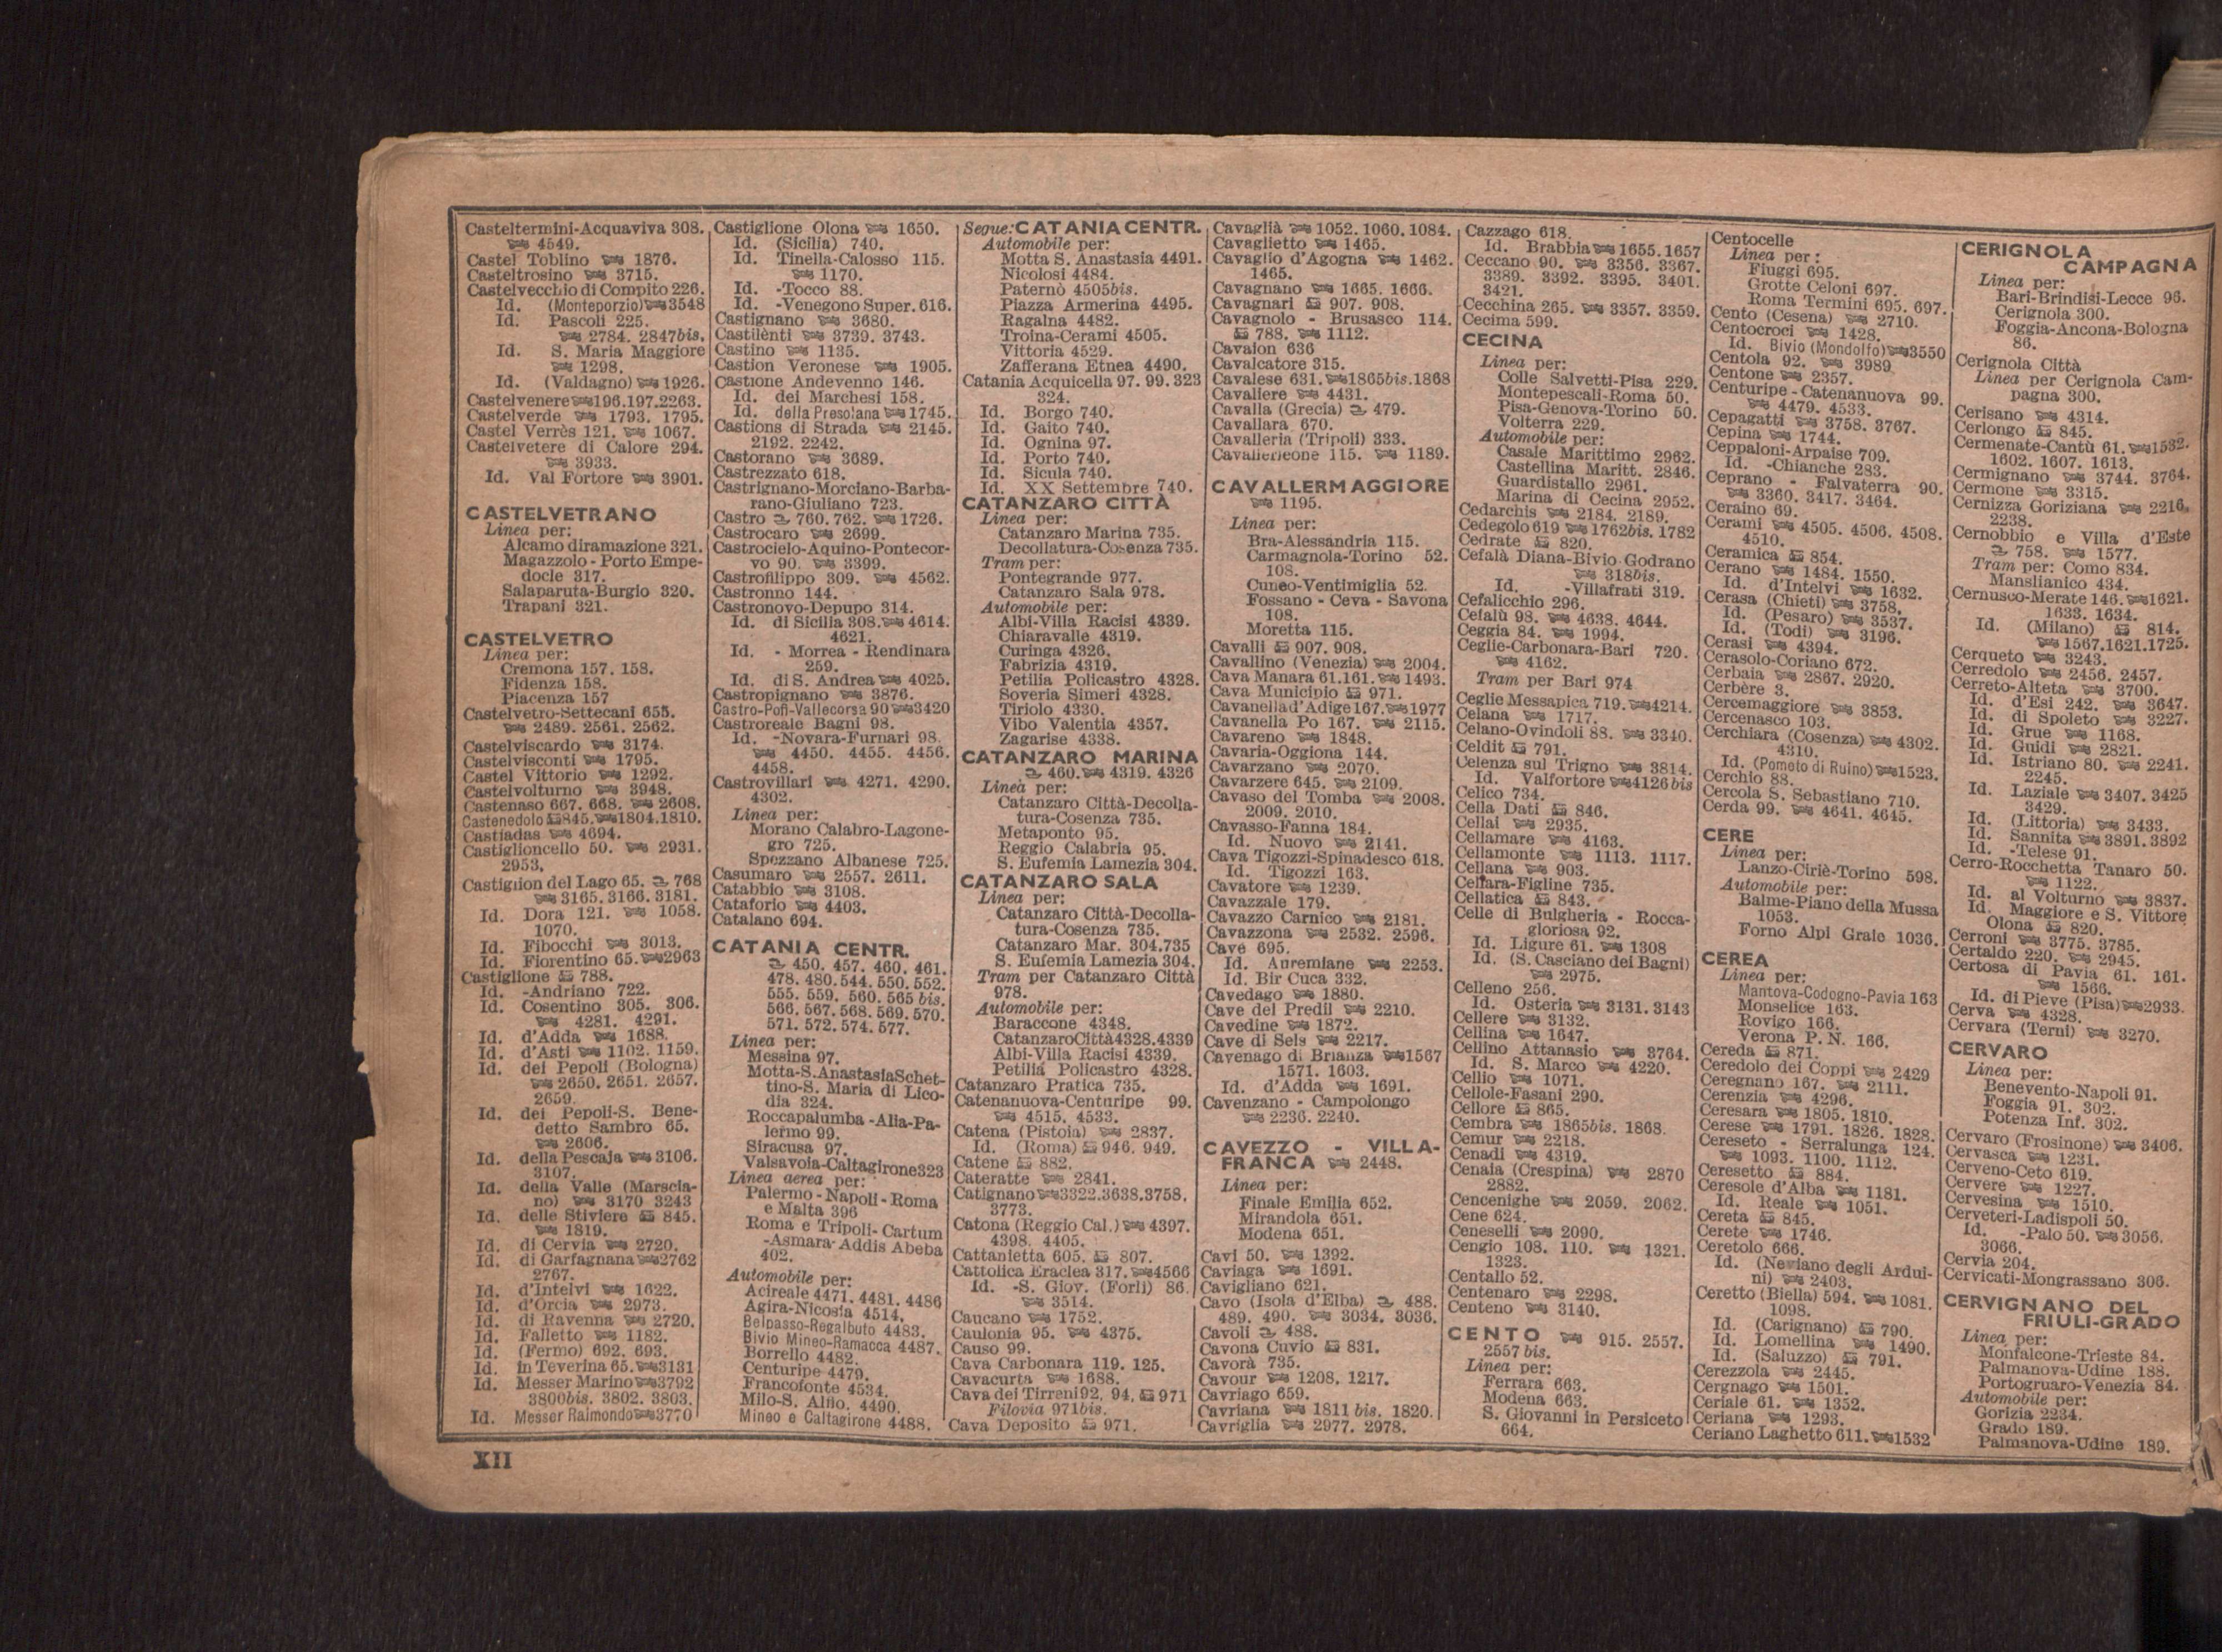 Casteltermini-Acquaviva 308.
4549.
Castel Toblino 1876.
Casteltrosino 3715.
Castelvecchio di Compito 226.
Id. (Monteporzio) 3548
Id. Pascoli 225.
2784. 2847bis.
Id. S. Maria Maggiore
1298.
Id. (Valdagno) 1926.
Castelvenere 196.197.2263.
Castelverde 1793. 1795.
Castel Verrès 121. 1067.
Castelvetere di Calore 294.
3933.
Id. Val Fortore 3901.
CASTELVETRANO
Linea per:
Alcamo diramazione 321.
Magazzolo - Porto Empe-
docle 317.
Salaparuta-Burgio 320.
Trapani 321.
CASTELVETRO
Linea per:
Cremona 157. 158.
Fidenza 158.
Piacenza 157
Castelvetro-Settecani 655.
2489. 2561. 2562.
Castelviscardo 3174.
Castelvisconti 1795.
Castel Vittorio 1292.
Castelvolturno 3948.
Castenaso 667. 668. 2608.
Castenedolo 845. 1804.1810.
Castiadas 4694.
Castiglioncello 50. 2931.
2953.
Castiglion del Lago 65. 768
3165. 3166. 3181.
Id. Dora 121. 1058.
1070.
Id. Fibocchi 3013.
Id. Fiorentino 65. 2963
Castiglione 788.
Id. -Andriano 722.
Id. Cosentino 305. 306.
4281. 4291.
Id. d'Adda 1688.
Id. d'Asti 1102. 1159.
Id. dei Pepoli (Bologna)
2650. 2651. 2657.
2659.
Id. dei Pepoli-S. Bene-
detto Sambro 65.
2606.
Id. della Pescaja 3106.
3107.
Id. della Valle (Marscia-
no) 3170 3243
Id. delle Stiviere 845.
1819.
Id. di Cervia 2720.
Id. di Garfagnana 2762
2767.
Id. d'Intelvi 1622.
Id. d'Orcia 2973.
Id. di Ravenna 2720.
Id. Falletto 1182.
Id. (Fermo) 692. 693.
Id. in Teverina 65. 3131
Id. Messer Marino 3792
3800bis. 3802. 3803.
Id. Messer Raimondo 3770
Castiglione Olona 1650.
Id. (Sicilia) 740.
Id. Tinella-Calosso 115.
1170.
Id. -Tocco 88.
Id. -Venegono Super. 616.
Castignano 3680.
Castilènti 3739. 3743.
Castino 1135.
Castion Veronese 1905.
Castione Andevenno 146.
Id. dei Marchesi 158.
Id. della Presolana 1745.
Castions di Strada 2145.
2192. 2242.
Castorano 3689.
Castrezzato 618.
Castrignano-Morciano-Barba-
rano-Giuliano 723.
Castro 760. 762. 1726.
Castrocaro 2699.
Castrocielo-Aquino-Pontecor-
vo 90. 3399.
Castrofilippo 309. 4562.
Castronno 144.
Castronovo-Depupo 314.
Id. di Sicilia 308. 4614.
4621.
Id. - Morrea - Rendinara
259.
Id. di S. Andrea 4025.
Castropignano 3876.
Castro-Pofi-Vallecorsa 90 3420
Castroreale Bagni 98.
Id. -Novara-Furnari 98.
4450. 4455. 4456.
4458.
Castrovillari 4271. 4290.
4302.
Linea per:
Morano Calabro-Lagone-
gro 725.
Spezzano Albanese 725.
Casumaro 2557. 2611.
Catabbio 3108.
Cataforio 4403.
Catalano 694.
CATANIA CENTR.
450. 457. 460. 461.
478. 480. 544. 550. 552.
555. 559. 560. 565 bis.
566. 567. 568. 569. 570.
571. 572. 574. 577.
Linea per:
Messina 97.
Motta-S.AnastasiaSchet-
tino-S. Maria di Lico-
dia 324.
Roccapalumba -Alia-Pa-
lermo 99.
Siracusa 97.
Valsavoia-Caltagirone323
Linea aerea per:
Palermo - Napoli - Roma
e Malta 396
Roma e Tripoli- Cartum
-Asmara- Addis Abeba
402.
Automobile per:
Acireale 4471. 4481. 4486
Agira-Nicosia 4514.
Belpasso-Regalbuto 4483.
Bivio Mineo-Ramacca 4487.
Borrello 4482.
Centuripe 4479.
Francofonte 4534.
Milo-S. Alfio. 4490.
Mineo e Caltagirone 4488.
Segue: CATANIA CENTR.
Automobile per:
Motta S. Anastasia 4491.
Nicolosi 4484.
Paternò 4505bis.
Piazza Armerina 4495.
Ragalna 4482.
Troina-Cerami 4505.
Vittoria 4529.
Zafferana Etnea 4490.
Catania Acquicella 97. 99. 323
324.
Id. Borgo 740.
Id. Gaito 740.
Id. Ognina 97.
Id. Porto 740.
Id. Sicula 740.
Id. XX Settembre 740.
CATANZARO CITTÀ
Linea per:
Catanzaro Marina 735.
Decollatura-Cosenza 735.
Tram per:
Pontegrande 977.
Catanzaro Sala 978.
Automobile per:
Albi-Villa Racisi 4339.
Chiaravalle 4319.
Curinga 4326.
Fabrizia 4319.
Petilia Policastro 4328.
Soveria Simeri 4328.
Tiriolo 4330.
Vibo Valentia 4357.
Zagarise 4338.
CATANZARO MARINA
460. 4319. 4326
Linea per:
Catanzaro Città-Decolla-
tura-Cosenza 735.
Metaponto 95.
Reggio Calabria 95.
S. Eufemia Lamezia 304.
CATANZARO SALA
Linea per:
Catanzaro Città-Decolla-
tura-Cosenza 735.
Catanzaro Mar. 304.735
S. Eufemia Lamezia 304.
Tram per Catanzaro Città
978.
Automobile per:
Baraccone 4348.
CatanzaroCittà4328.4339
Albi-Villa Racisi 4339.
Petilia Policastro 4328.
Catanzaro Pratica 735.
Catenanuova-Centuripe 99.
4515. 4533.
Catena (Pistoia) 2837.
Id. (Roma) 946. 949.
Catene 882.
Cateratte 2841.
Catignano 3322.3638.3758.
3773.
Catona (Reggio Cal.) 4397.
4398. 4405.
Cattanietta 605. 807.
Cattolica Eraclea 317. 4566
Id. -S. Giov. (Forlì) 86.
3514.
Caucano 1752.
Caulonia 95. 4375.
Causo 99.
Cava Carbonara 119. 125.
Cavacurta 1688.
Cava dei Tirreni92. 94. 971
Filovia 971bis.
Cava Deposito 971.
Cavaglià 1052. 1060. 1084.
Cavaglietto 1465.
Cavaglio d'Agogna 1462.
1465.
Cavagnano 1665. 1666.
Cavagnari 907. 908.
Cavagnolo - Brusasco 114.
788. 1112.
Cavaion 636
Cavalcatore 315.
Cavalese 631. 1865bis.1868
Cavaliere 4431.
Cavalla (Grecia) 479.
Cavallara 670.
Cavalleria (Tripoli) 333.
Cavallerleone 115. 1189.
CAVALLERMAGGIORE
1195.
Linea per:
Bra-Alessandria 115.
Carmagnola-Torino 52.
108.
Cuneo-Ventimiglia 52.
Fossano - Ceva - Savona
108.
Moretta 115.
Cavalli 907. 908.
Cavallino (Venezia) 2004.
Cava Manara 61.161. 1493.
Cava Municipio 971.
Cavanella d'Adige 167. 1977
Cavanella Po 167. 2115.
Cavareno 1848.
Cavaria-Oggiona 144.
Cavarzano 2070.
Cavarzere 645. 2109.
Cavaso del Tomba 2008.
2009. 2010.
Cavasso-Fanna 184.
Id. Nuovo 2141.
Cava Tigozzi-Spinadesco 618.
Id. Tigozzi 163.
Cavatore 1239.
Cavazzale 179.
Cavazzo Carnico 2181.
Cavazzona 2532. 2596.
Cave 695.
Id. Auremiane 2253.
Id. Bir Cuca 332.
Cavedago 1880.
Cave del Predil 2210.
Cavedine 1872.
Cave di Sels 2217.
Cavenago di Brianza 1567
1571. 1603.
Id. d'Adda 1691.
Cavenzano - Campolongo
2236. 2240.
CAVEZZO - VILLA-
FRANCA 2448.
Linea per:
Finale Emilia 652.
Mirandola 651.
Modena 651.
Cavi 50. 1392.
Caviaga 1691.
Cavigliano 621.
Cavo (Isola d'Elba) 488.
489. 490. 3034. 3036.
Cavoli 488.
Cavona Cuvio 831.
Cavorà 735.
Cavour 1208. 1217.
Cavriago 659.
Cavriana 1811 bis. 1820.
Cavriglia 2977. 2978.
Cazzago 618.
Id. Brabbia 1655.1657
Ceccano 90. 3356. 3367.
3389. 3392. 3395. 3401.
3421.
Cecchina 265. 3357. 3359.
Cecima 599.
CECINA
Linea per:
Colle Salvetti-Pisa 229.
Montepescali-Roma 50.
Pisa-Genova-Torino 50.
Volterra 229.
Automobile per:
Casale Marittimo 2962.
Castellina Maritt. 2846.
Guardistallo 2961.
Marina di Cecina 2952.
Cedarchis 2184. 2189.
Cedegolo 619 1762bis. 1782
Cedrate 820.
Cefalà Diana-Bivio Godrano
318bis.
Id. -Villafrati 319.
Cefalicchio 296.
Cefalù 98. 4638. 4644.
Ceggia 84. 1994.
Ceglie-Carbonara-Bari 720.
4162.
Tram per Bari 974
Ceglie Messapica 719. 4214.
Celana 1717.
Celano-Ovindoli 88. 3340.
Celdit 791.
Celenza sul Trigno 3814.
Id. Valfortore 4126bis
Celico 734.
Cella Dati 846.
Cellai 2935.
Cellamare 4163.
Cellamonte 1113. 1117.
Cellana 903.
Cellara-Figline 735.
Cellatica 843.
Celle di Bulgheria - Rocca-
gloriosa 92.
Id. Ligure 61. 1308
Id. (S. Casciano dei Bagni)
2975.
Celleno 256.
Id. Osteria 3131. 3143
Cellere 3132.
Cellina 1647.
Cellino Attanasio 3764.
Id. S. Marco 4220.
Cellio 1071.
Cellole-Fasani 290.
Cellore 865.
Cembra 1865bis. 1868.
Cemur 2218.
Cenadi 4319.
Cenaia (Crespina) 2870
2882.
Cencenighe 2059. 2062.
Cene 624.
Ceneselli 2090.
Cengio 108. 110. 1321.
1323.
Centallo 52.
Centenaro 2298.
Centeno 3140.
CENTO 915. 2557.
2557 bis.
Linea per:
Ferrara 663.
Modena 663.
S. Giovanni in Persiceto
664.
Centocelle
Linea per:
Fiuggi 695.
Grotte Celoni 697.
Roma Termini 695. 697.
Cento (Cesena) 2710.
Centocroci 1428.
Id. Bivio (Mondolfo) 3550
Centola 92. 3989
Centone 2357.
Centuripe - Catenanuova 99.
4479. 4533.
Cepagatti 3758. 3767.
Cepina 1744.
Ceppaloni-Arpaise 709.
Id. -Chianche 283.
Ceprano - Falvaterra 90.
3360. 3417. 3464.
Ceraino 69.
Cerami 4505. 4506. 4508.
4510.
Ceramica 854.
Cerano 1484. 1550.
Id. d'Intelvi 1632.
Cerasa (Chieti) 3758.
Id. (Pesaro) 3537.
Id. (Todi) 3196.
Cerasi 4394.
Cerasolo-Coriano 672.
Cerbaia 2867. 2920.
Cerbère 3.
Cercemaggiore 3853.
Cercenasco 103.
Cerchiara (Cosenza) 4302.
4310.
Id. (Pometo di Ruino) 1523.
Cerchio 88.
Cercola S. Sebastiano 710.
Cerda 99. 4641. 4645.
CERE
Linea per:
Lanzo-Ciriè-Torino 598.
Automobile per:
Balme-Piano della Mussa
1053.
Forno Alpi Graie 1036.
CEREA
Linea per:
Mantova-Codogno-Pavia 163
Monselice 163.
Rovigo 166.
Verona P. N. 166.
Cereda 871.
Ceredolo dei Coppi 2429
Ceregnano 167. 2111.
Cerenzia 4296.
Ceresara 1805. 1810.
Cerese 1791. 1826. 1828.
Cereseto - Serralunga 124.
1093. 1100. 1112.
Ceresetto 884.
Ceresole d'Alba 1181.
Id. Reale 1051.
Cereta 845.
Cerete 1746.
Ceretolo 666.
Id. (Neviano degli Ardui-
ni) 2403.
Ceretto (Biella) 594. 1081.
1098.
Id. (Carignano) 790.
Id. Lomellina 1490.
Id. (Saluzzo) 791.
Cerezzola 2445.
Cergnago 1501.
Ceriale 61. 1352.
Ceriana 1293.
Ceriano Laghetto 611. 1532
CERIGNOLA
CAMPAGNA
Linea per:
Bari-Brindisi-Lecce 96.
Cerignola 300.
Foggia-Ancona-Bologna
86.
Cerignola Città
Linea per Cerignola Cam-
pagna 300.
Cerisano 4314.
Cerlongo 845.
Cermenate-Cantù 61. 1532.
1602. 1607. 1613.
Cermignano 3744. 3764.
Cermone 3315.
Cernizza Goriziana 2216.
2238.
Cernobbio e Villa d'Este
758. 1577.
Tram per: Como 834.
Manslianico 434.
Cernusco-Merate 146. 1621.
1633. 1634.
Id. (Milano) 814.
1567.1621.1725.
Cerqueto 3243.
Cerredolo 2456. 2457.
Cerreto-Alteta 3700.
Id. d'Esi 242. 3647.
Id. di Spoleto 3227.
Id. Grue 1168.
Id. Guidi 2821.
Id. Istriano 80. 2241.
2245.
Id. Laziale 3407. 3425
3429.
Id. (Littoria) 3433.
Id. Sannita 3891. 3892
Id. -Telese 91.
Cerro-Rocchetta Tanaro 50.
1122.
Id. al Volturno 3837.
Id. Maggiore e S. Vittore
Olona 820.
Cerroni 3775. 3785.
Certaldo 220. 2945.
Certosa di Pavia 61. 161.
1566.
Id. di Pieve (Pisa) 2933.
Cerva 4328.
Cervara (Terni) 3270.
CERVARO
Linea per:
Benevento-Napoli 91.
Foggia 91. 302.
Potenza Inf. 302.
Cervaro (Frosinone) 3406.
Cervasca 1231.
Cerveno-Ceto 619.
Cervere 1227.
Cervesina 1510.
Cerveteri-Ladispoli 50.
Id. -Palo 50. 3056.
3066.
Cervia 204.
Cervicati-Mongrassano 306.
CERVIGNANO DEL
FRIULI-GRADO
Linea per:
Monfalcone-Trieste 84.
Palmanova-Udine 188.
Portogruaro-Venezia 84.
Automobile per:
Gorizia 2234.
Grado 189.
Palmanova-Udine 189.
XII